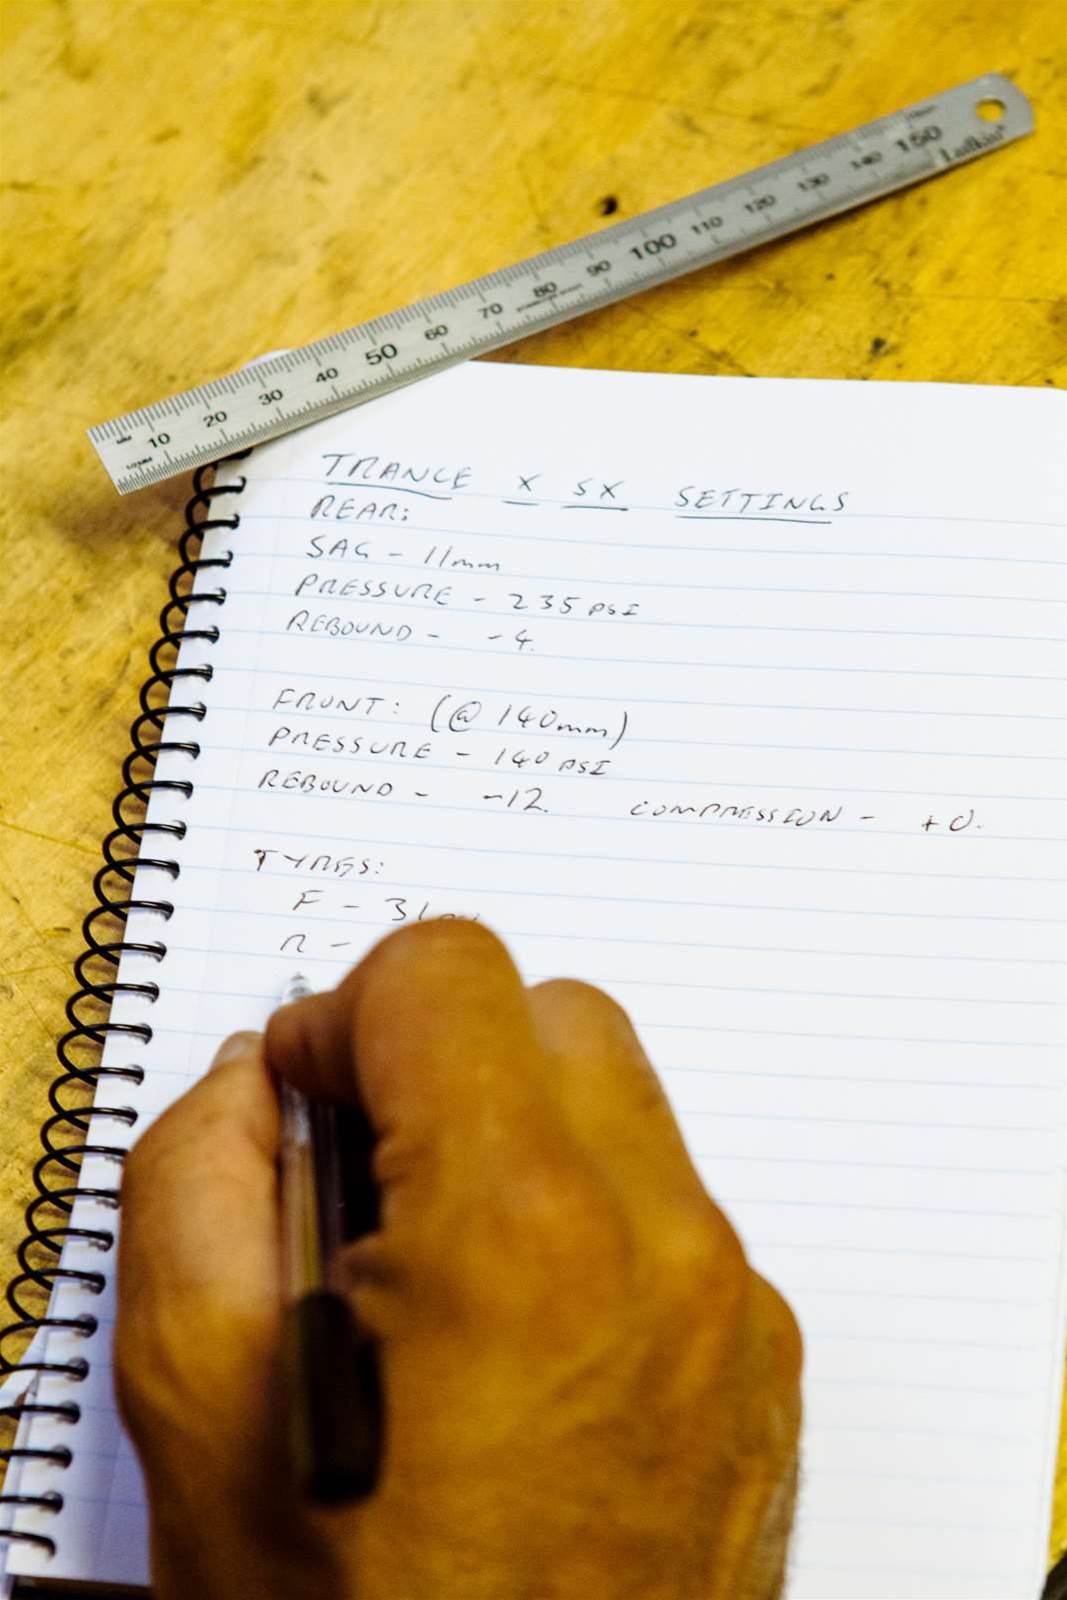 10 20 30 40 50 60 70 80 90 100 110 120 130 140 150
Lufkin
TRANCE X SX SETTINGS
REAR:
SAG - 11mm
PRESSURE - 235 PSI
REBOUND - -4.
FRONT: (@ 140mm)
PRESSURE - 140 PSI
REBOUND - -12. COMPRESSION - +0.
TYRES:
F - 3
R -